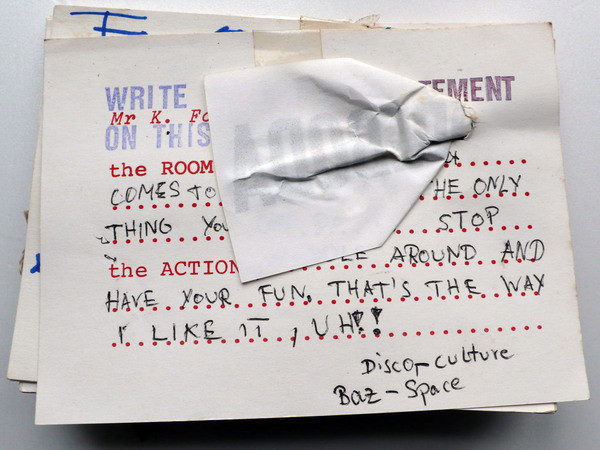 WRITE TEMENT
Mr K. Fo
ON THIS
the ROOM
COMES TO HE ONLY
THING YOU STOP
the ACTION LE AROUND AND
HAVE YOUR FUN, THAT'S THE WAY
I LIKE IT, UH!!
Disco-culture
Baz-Space